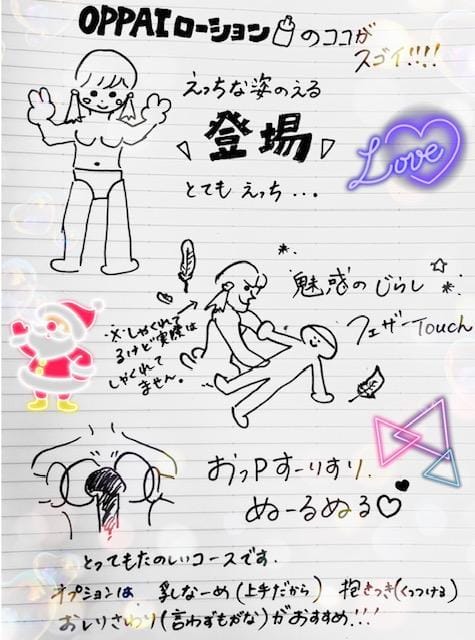 OPPAIローションのココが
スゴイ!!!!
えっちな姿のえる
登場
とても えっち...。
Love
魅惑のじらし
フェザーTouch
※しゃくれて
るけど実際は
しゃくれて
ません。
おっPすーりすり.
ぬーるぬる♡
とってもたのしいコースです.
オプションは 乳しなーめ(上手だから) 抱きつき(くっつける)
おしりさわり(言わずもがな)がおすすめ!!!